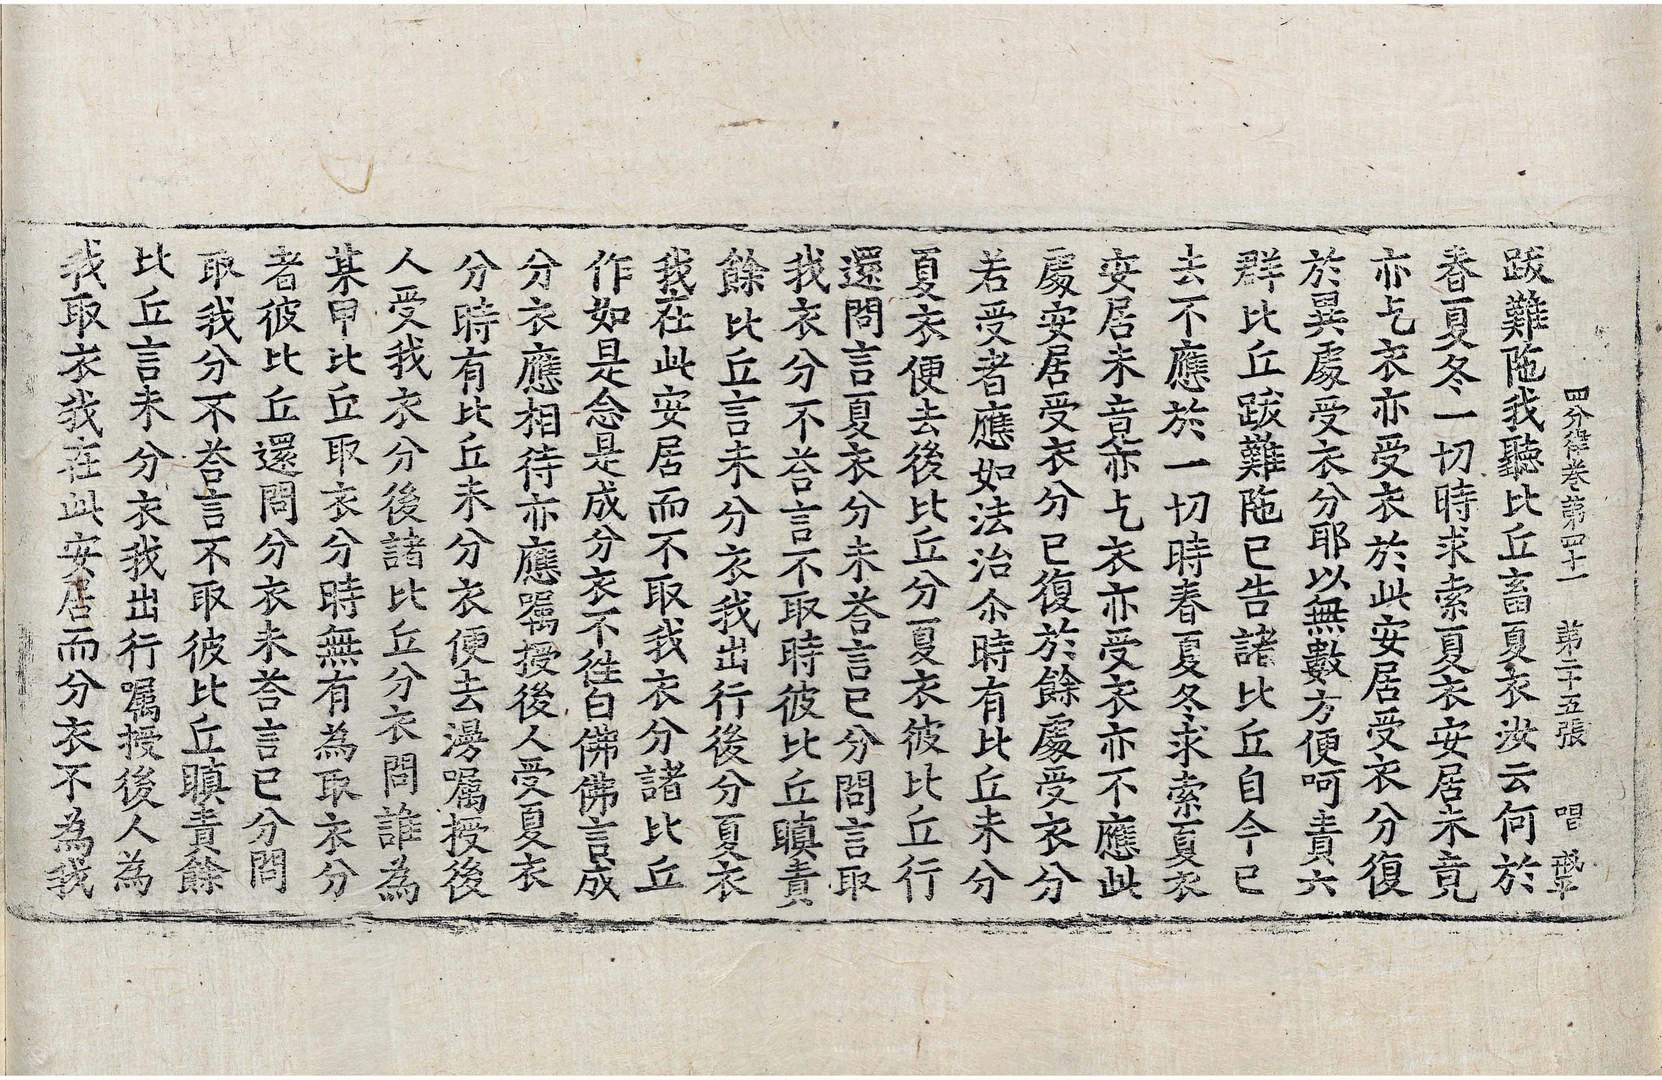 四分律卷第四十一 第二十五張 唱
跋難陁我聽比丘畜夏衣汝云何於
春夏冬一切時求索夏衣安居未竟
亦乞衣亦受衣於此安居受衣分復
於異處受衣分耶以無數方便呵責六
群比丘跋難陁已告諸比丘自今已
去不應於一切時春夏冬求索夏衣
安居未竟亦乞衣亦受衣亦不應此
處安居受衣分已復於餘處受衣分
若受者應如法治尒時有比丘未分
夏衣便去後比丘分夏衣彼比丘行
還問言夏衣分未荅言已分問言取
我衣分不荅言不取時彼比丘瞋責
餘比丘言未分衣我出行後分夏衣
我在此安居而不取我衣分諸比丘
作如是念是成分衣不徃白佛佛言成
分衣應相待亦應囑授後人受夏衣
分時有比丘未分衣便去湯囑授後
人受我衣分後諸比丘分衣問誰為
某甲比丘取衣分時無有為取衣分
者彼比丘還問分衣未荅言已分問
取我分不荅言不取彼比丘瞋責餘
比丘言未分衣我出行囑授後人為
我取衣我在此安居而分衣不為我